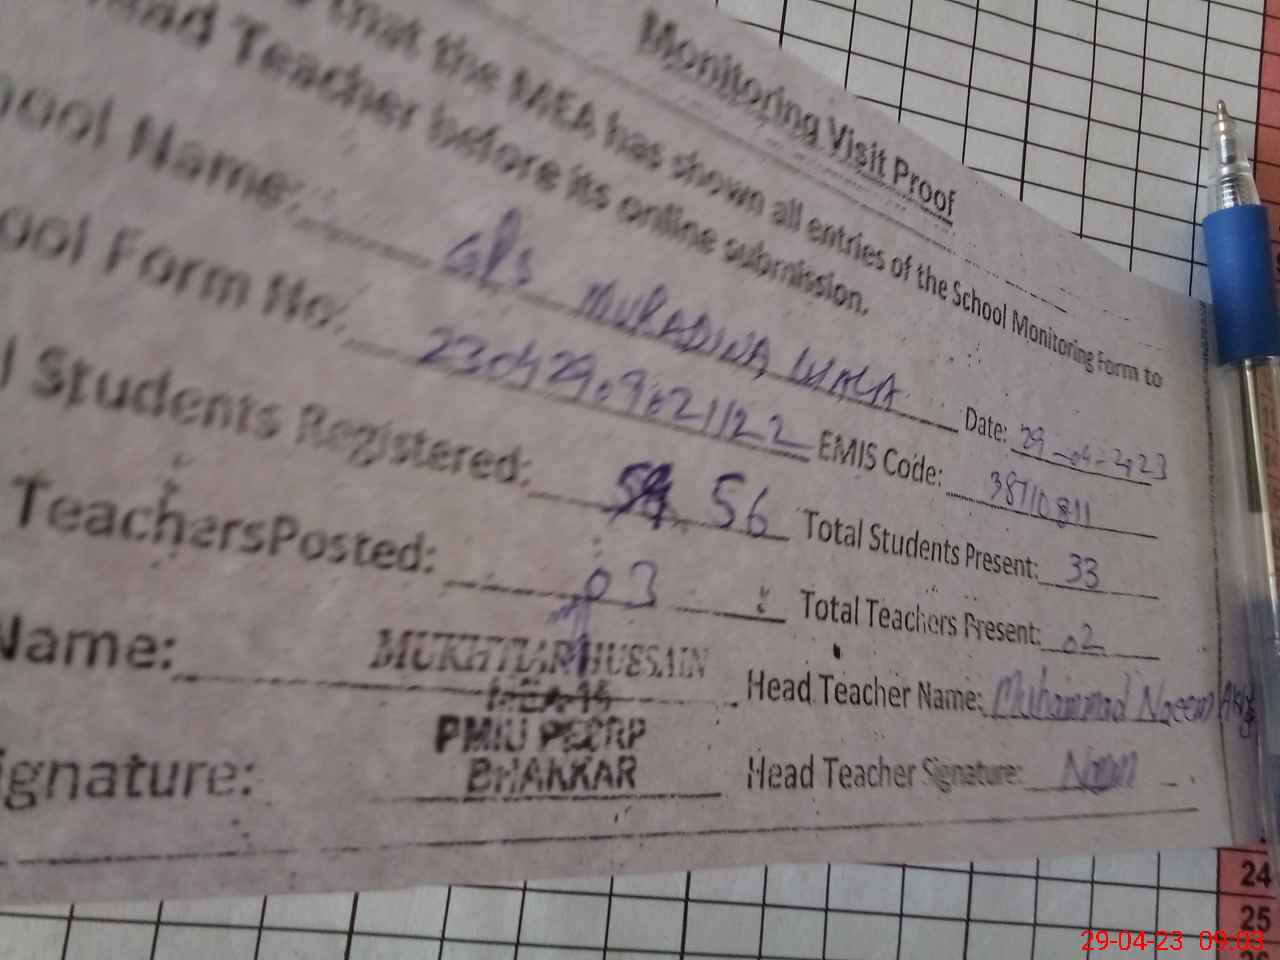 Monitoring Visit Proof
that the MEA has shown all entries of the School Monitoring Form to
ead Teacher before its online submission.
ool Name: GPS MURADINA WALA Date: 29-04-2023
ool Form No: EMIS Code: 38710811
l Students Registered: 56 Total Students Present: 33
TeachersPosted: 03 Total Teachers Present: 02
Name: MUKHTIAR HUSSAIN Head Teacher Name: Muhammad Naeem
MEA-15
PMIU PESRP
BHAKKAR
ignature: Head Teacher Signature: Naeem
24
25
29-04-23 09:03